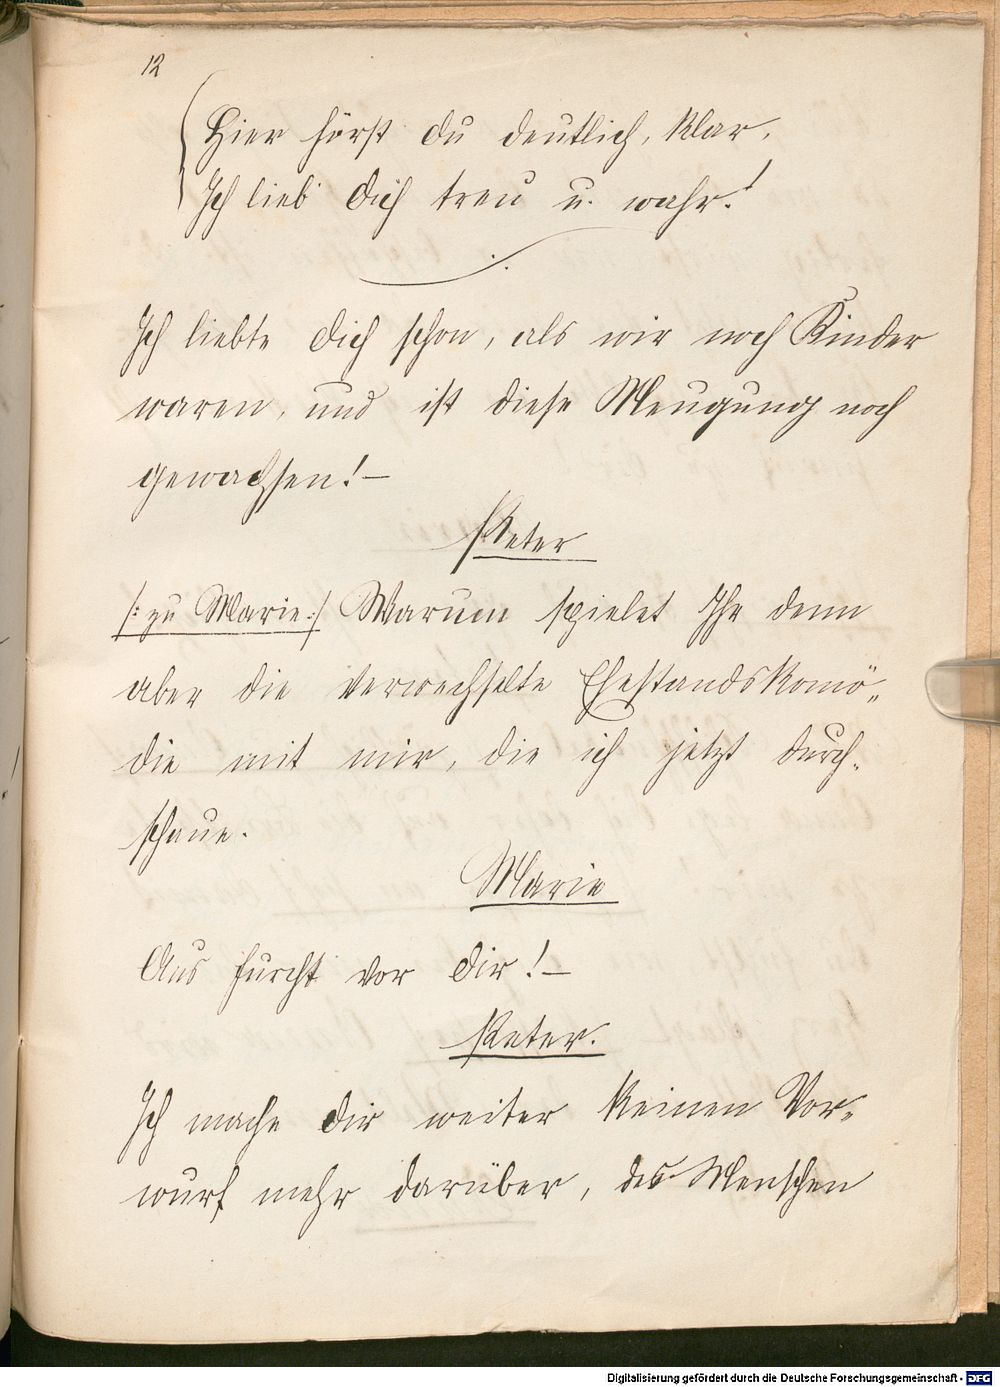 12
Hier hörst du deutlich, klar,
Ich lieb' dich treu u. wahr.!
Ich liebte dich schon, als wir noch Kinder
waren, und ist diese Neugung noch
gewachsen! –
Peter
/: zu Marie :/ Warum spielet Ihr denn
aber die verwechselte Ehestandskomö„
die mit mir, die ich jetzt durch„
schaue.
Marie
Aus Furcht vor dir! –
Peter.
Ich mache dir weiter keinen Vor„
wurf mehr darüber, des Menschen
Digitalisierung gefördert durch die Deutsche Forschungsgemeinschaft - DFG